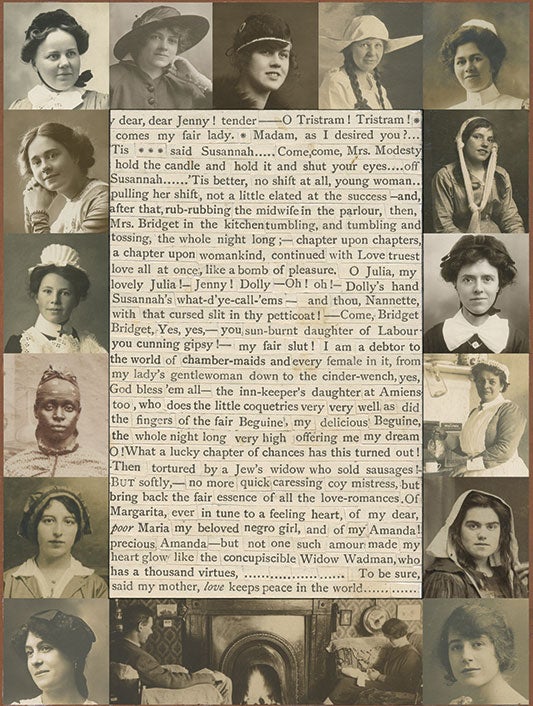 y dear, dear Jenny! tender——O Tristram! Tristram! *
comes my fair lady. * Madam, as I desired you ?...
Tis * * * said Susannah..... Come,come, Mrs. Modesty
hold the candle and hold it and shut your eyes....off
Susannah......'Tis better, no shift at all, young woman..
pulling her shift, not a little elated at the success —and,
after that, rub-rubbing the midwife in the parlour, then,
Mrs. Bridget in the kitchen tumbling, and tumbling and
tossing, the whole night long ;— chapter upon chapters,
a chapter upon womankind, continued with Love truest
love all at once, like a bomb of pleasure. O Julia, my
lovely Julia !— Jenny! Dolly —Oh! oh !— Dolly's hand
Susannah's what-d'ye-call-'ems — and thou, Nannette,
with that cursed slit in thy petticoat! —Come, Bridget
Bridget, Yes, yes,— you sun-burnt daughter of Labour-
you cunning gipsy !— my fair slut! I am a debtor to
the world of chamber-maids and every female in it, from
my lady's gentlewoman down to the cinder-wench, yes,
God bless 'em all— the inn-keeper's daughter at Amiens
too, who does the little coquetries very very well as did
the fingers of the fair Beguine, my delicious Beguine,
the whole night long very high offering me my dream
O! What a lucky chapter of chances has this turned out!
Then tortured by a Jew's widow who sold sausages !-
BUT softly,— no more quick caressing coy mistress, but
bring back the fair essence of all the love-romances. Of
Margarita, ever in tune to a feeling heart, of my dear,
poor Maria my beloved negro girl, and of my Amanda!
precious Amanda—but not one such amour made my
heart glow like the concupiscible Widow Wadman, who
has a thousand virtues, ..................... To be sure,
said my mother, love keeps peace in the world...........